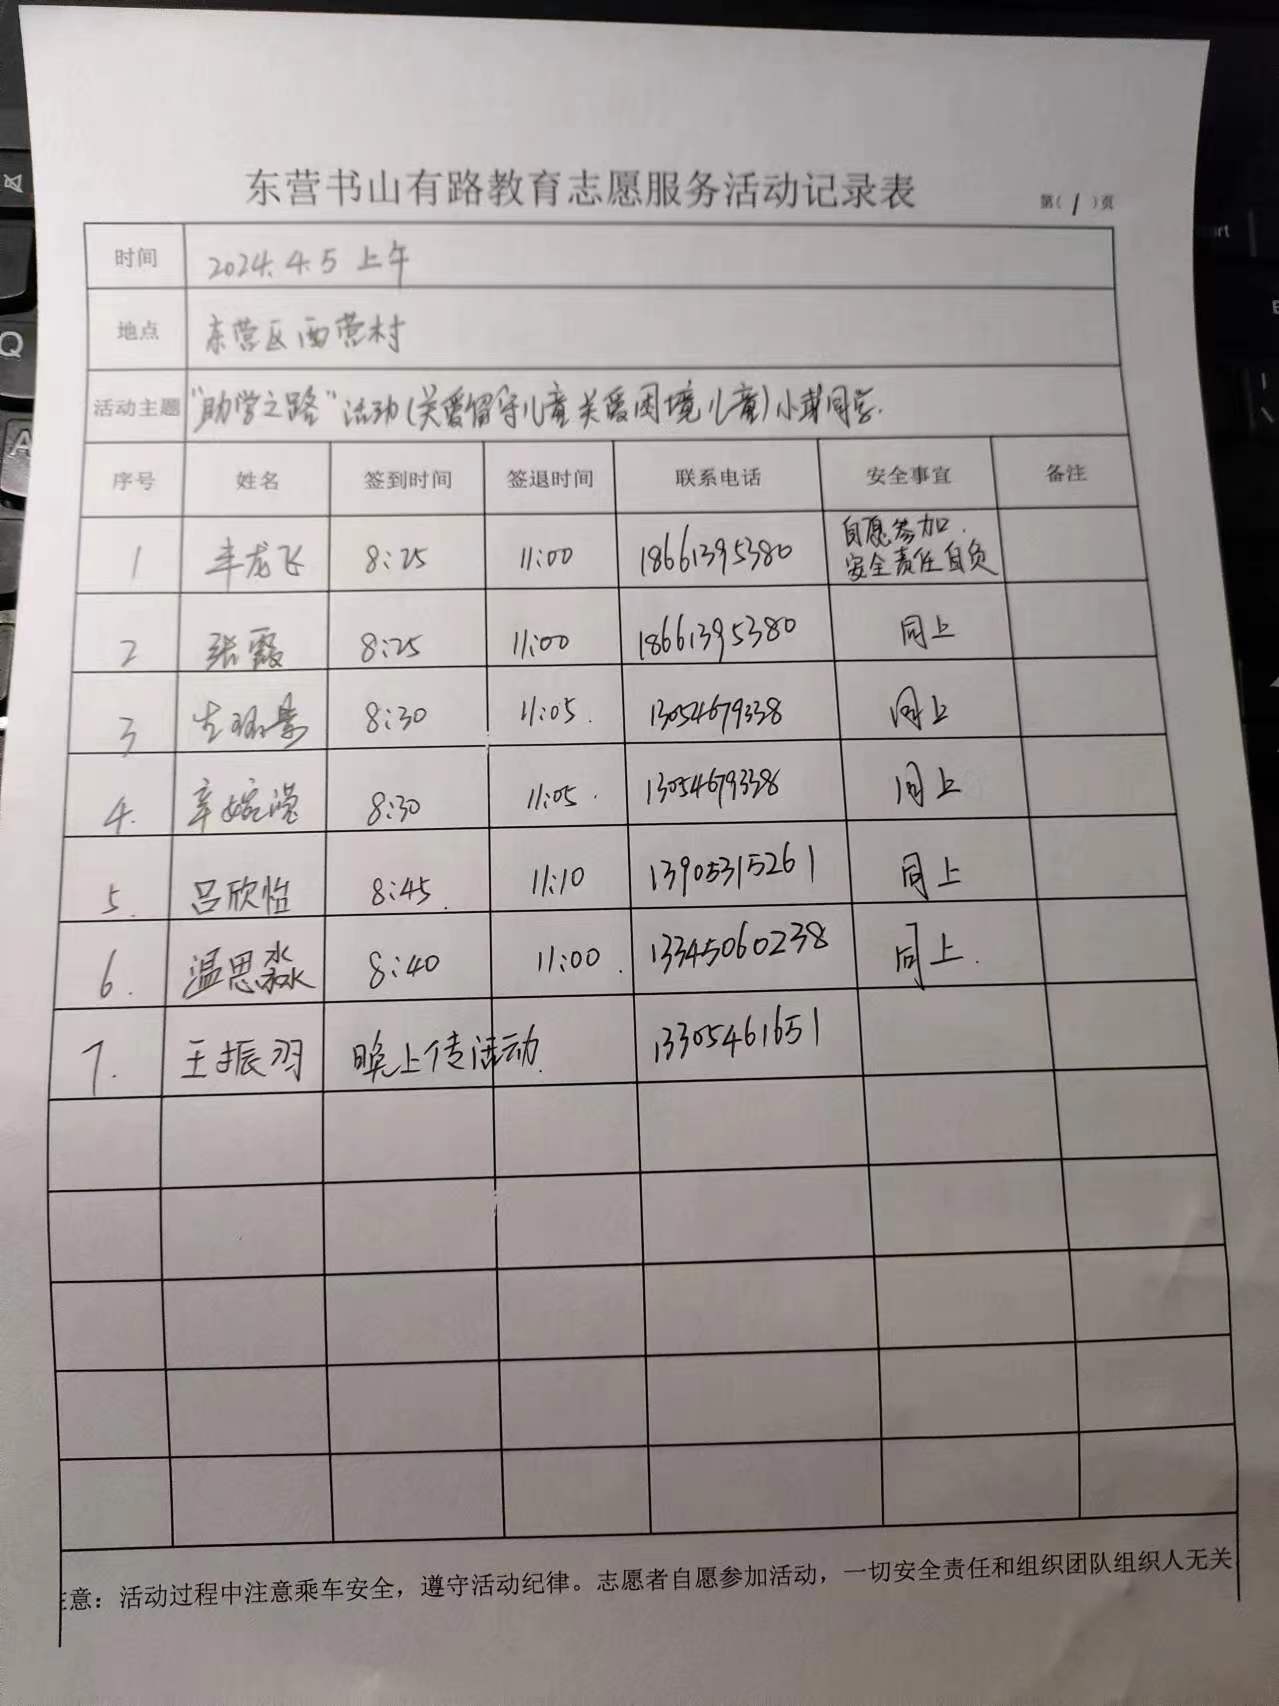 东营书山有路教育志愿服务活动记录表
第( 1 )页
时间 2024.4.5 上午
地点 东营区西营村
活动主题 "助学之路"活动(关爱留守儿童关爱困境儿童)小 同学.
序号 姓名 签到时间 签退时间 联系电话 安全事宜 备注
1 龙飞 8:25 11:00 18661395380 自愿参加.
安全责任自负
2 张霞 8:25 11:00 18661395380 同上
3 8:30 11:05. 13054679338 同上
4. 辛婉滢 8:30 11:05. 13054679338 同上
5. 吕欣怡 8:45. 11:10 13905315261 同上
6. 温思淼 8:40 11:00. 13345060238 同上.
7. 王振羽 晚上传活动. 13305461651
注意：活动过程中注意乘车安全，遵守活动纪律。志愿者自愿参加活动，一切安全责任和组织团队组织人无关